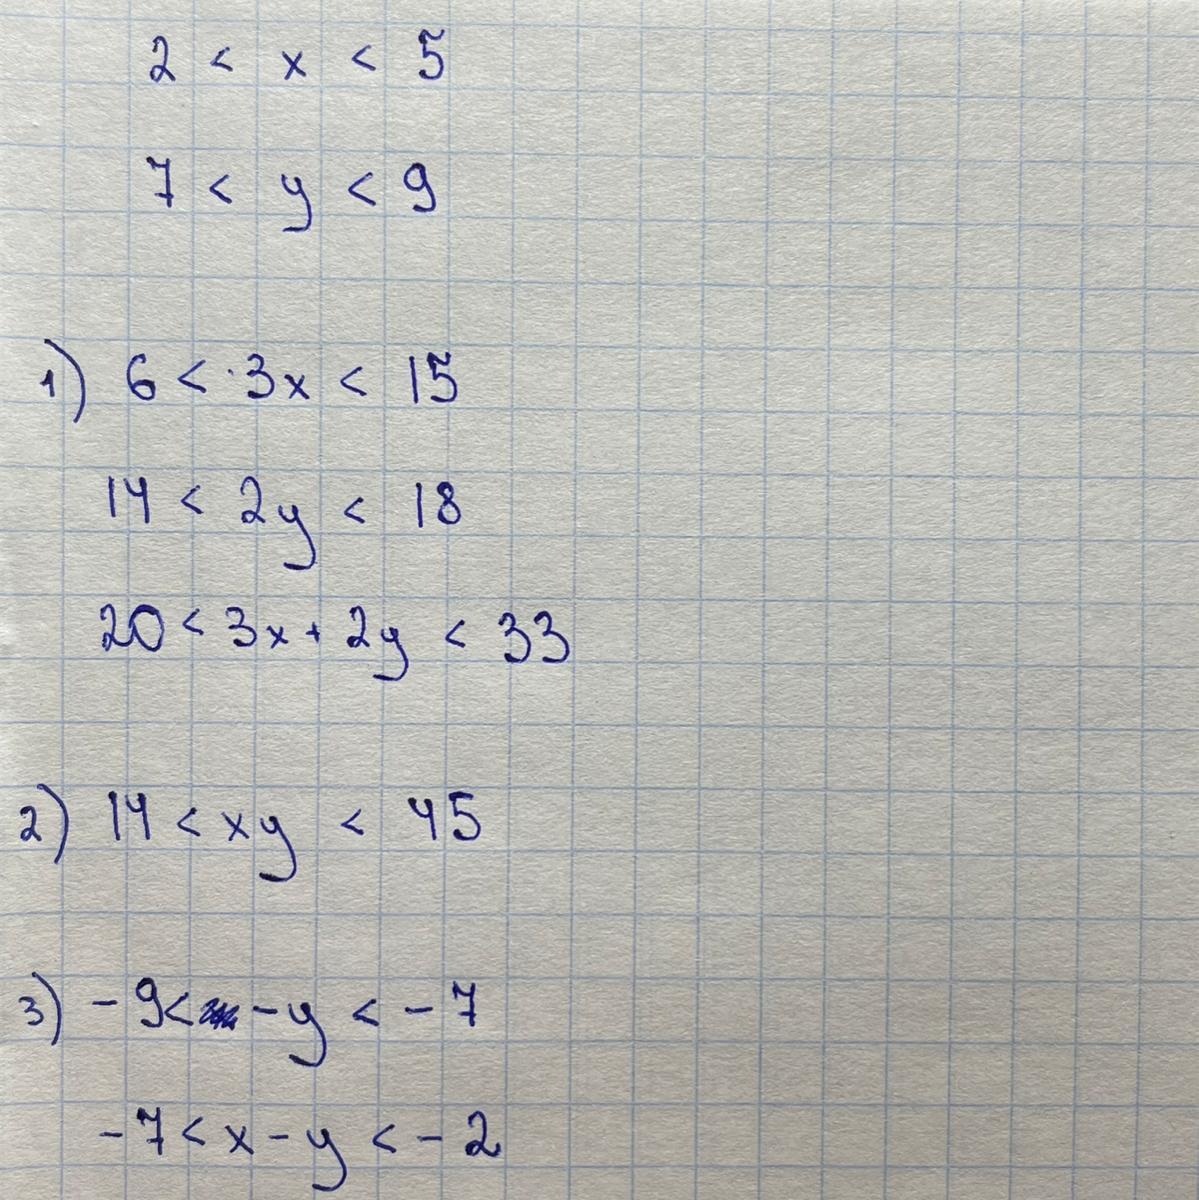 2 < x < 5
7 < y < 9
1) 6 < 3x < 15
14 < 2y < 18
20 < 3x + 2y < 33
2) 14 < xy < 45
3) - 9 < - y < - 7
- 7 < x - y < - 2